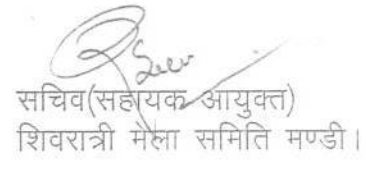 सचिव(सहायक आयुक्त)
शिवरात्री मेला समिति मण्डी।